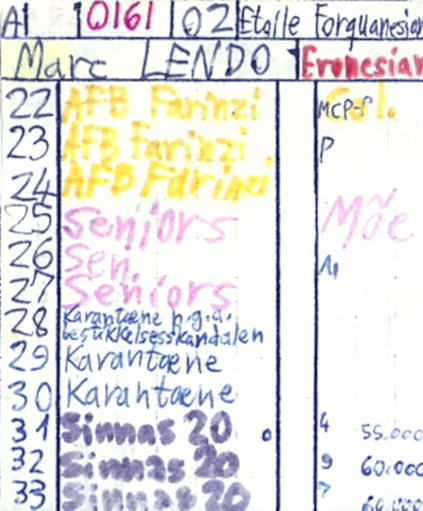 A1 0161 02 Etoile Forquanesian
Marc LENDO Eronesian
22 AFB Farinzi MCP-P Col.
23 AFB Farinzi P
24 AFB Farinzi
25 Seniors Mõe
26 Sen. A1
27 Seniors
28 Karantæne p.g.a. bestikkelsesskandalen
29 Karantæne
30 Karantæne
31 Sinnas 20 4 55.000
32 Sinnas 20 9 60.000
33 Sinnas 20 7 60.000